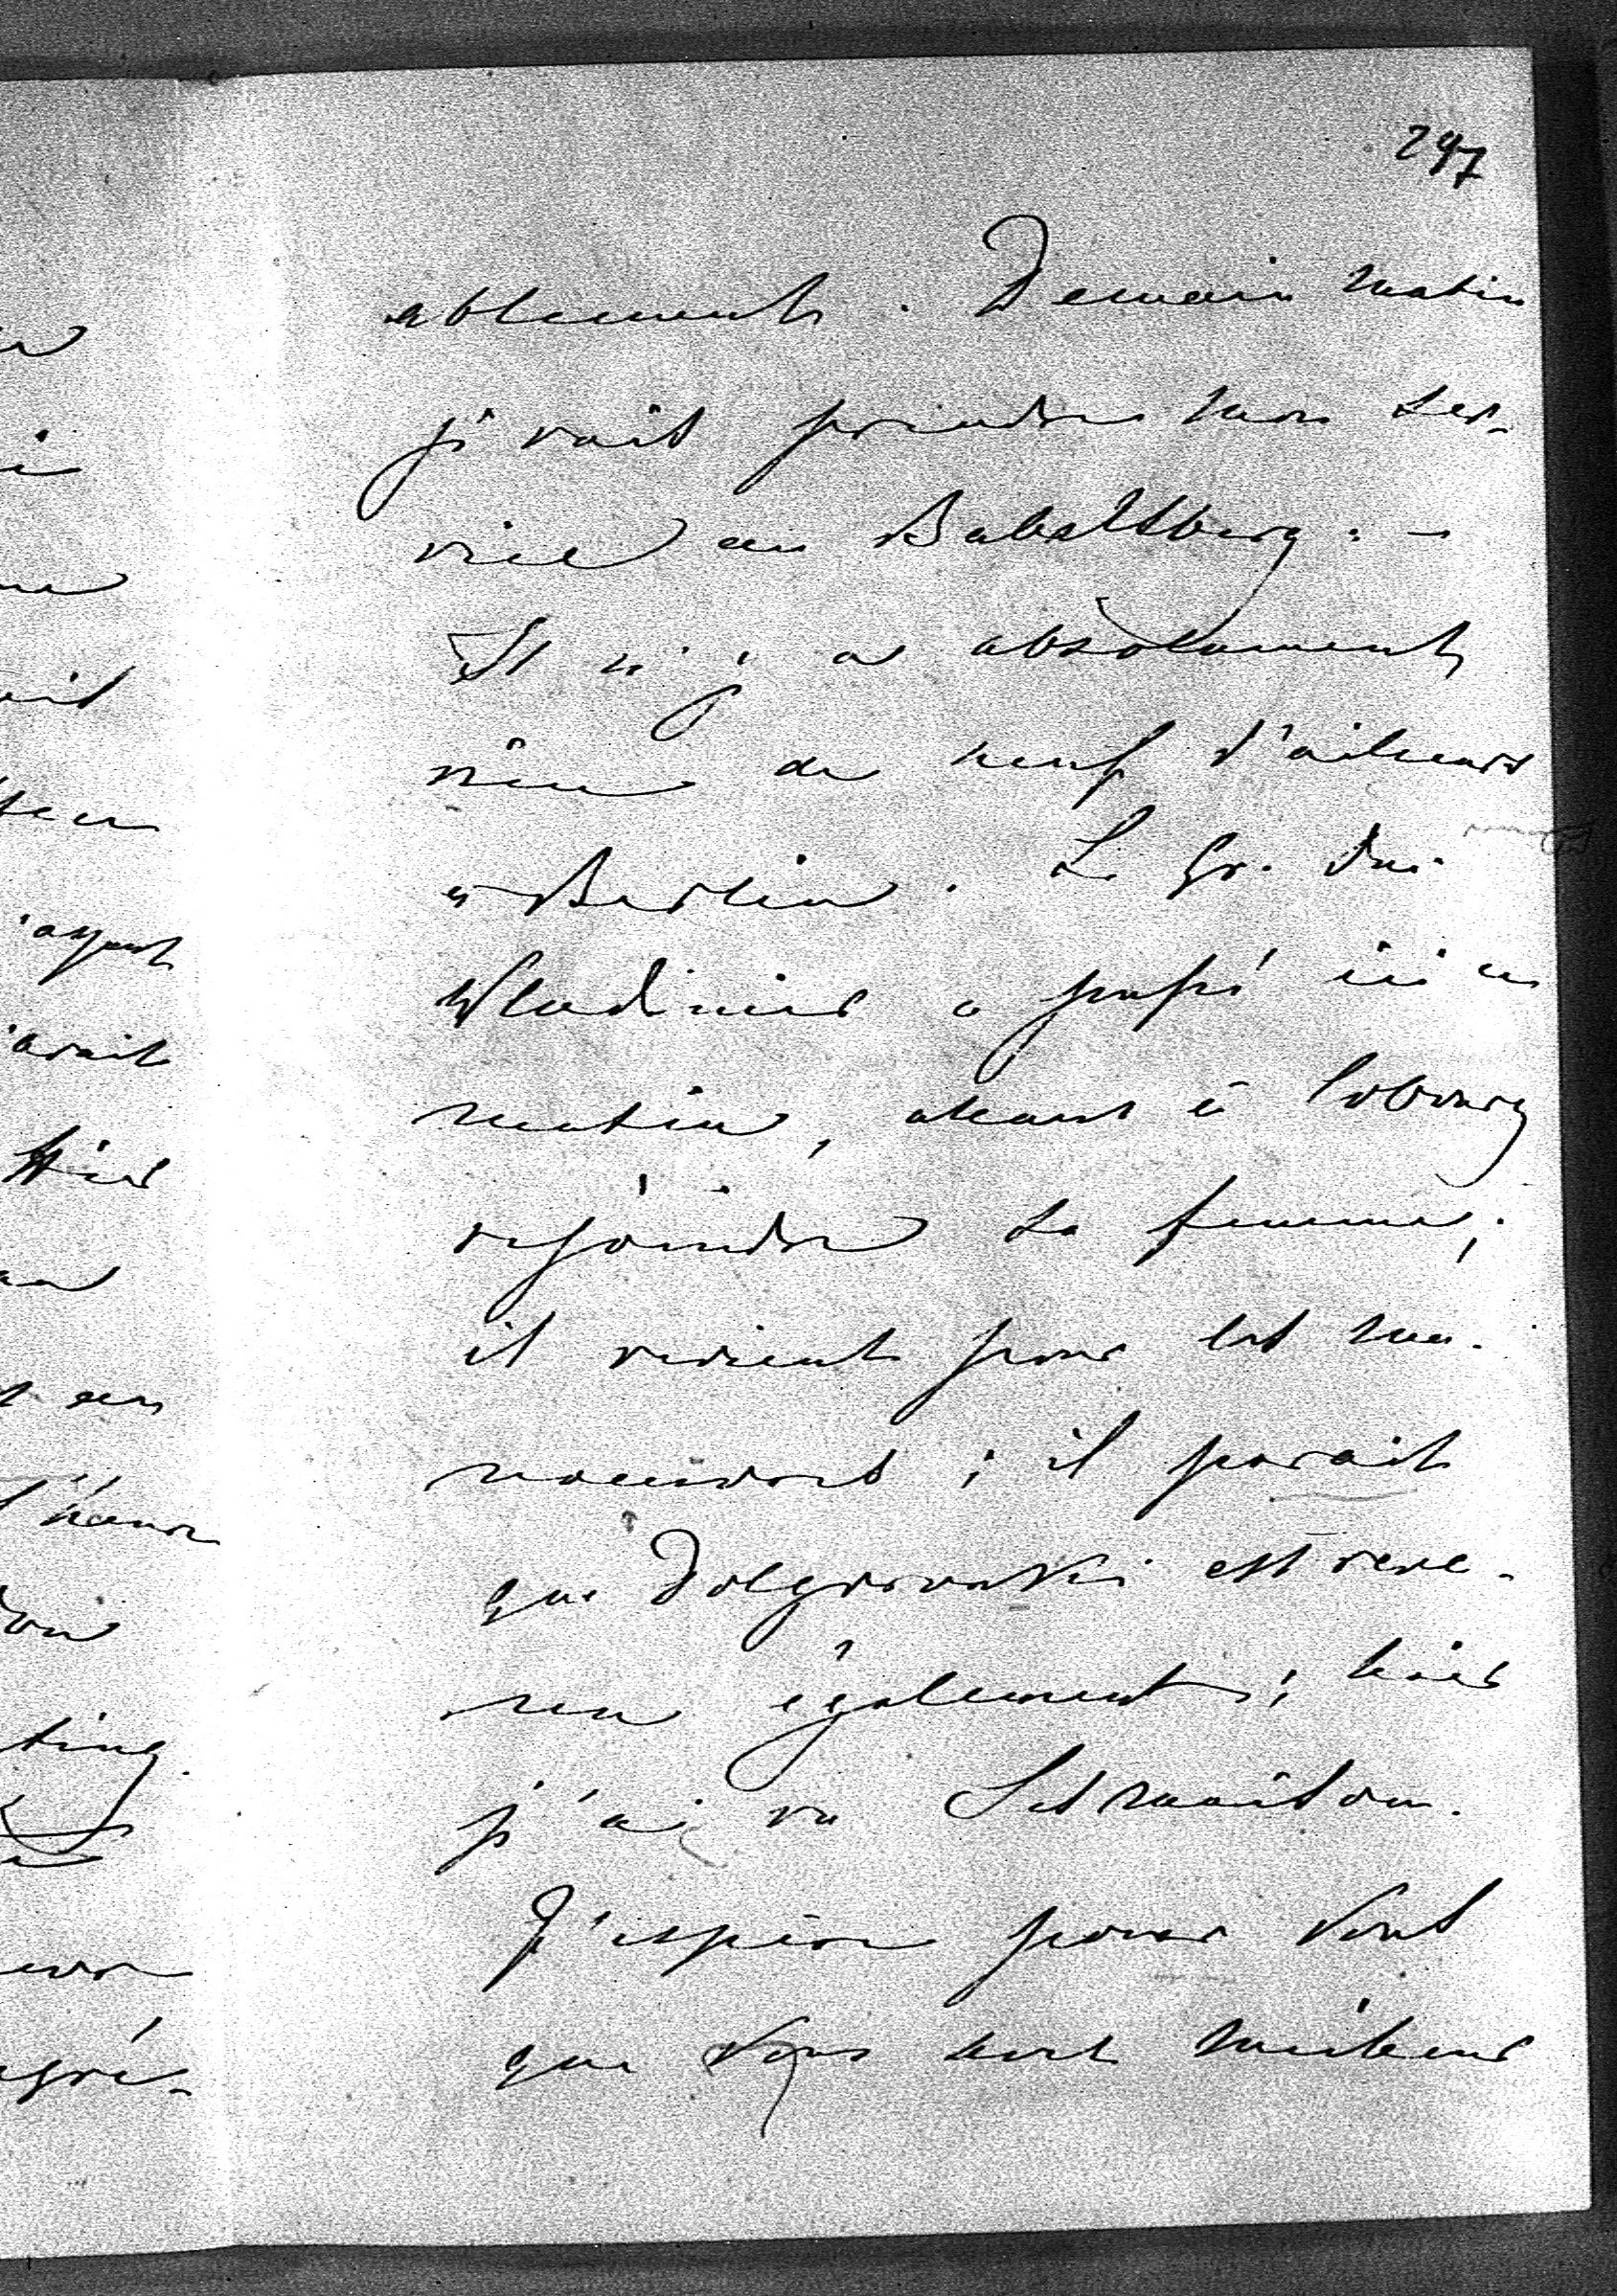 297
ablement. Demain matin
je vais prendre mon ser-
vice au Babelsberg. -
Il n'y a absolument
rien de neuf d'ailleurs
à Berlin. Le Gr. Duc
Wladimir a passé ici ce
matin, allant à Cobourg
rejoindre sa femme;
il revient pour les ma-
noeuvres; il parait
que Dolgorouki est reve-
nu également; hier
j'ai vu
J'espère pour Vous
que Vous avez meilleur